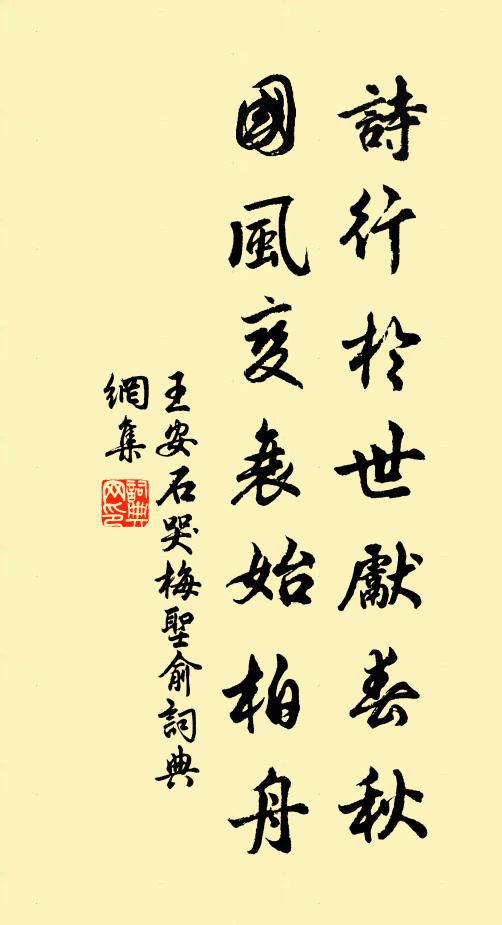 詩行於世獻春秋
國風变衰始柏舟
王安石哭梅聖俞詞典
網集
詞典
网印